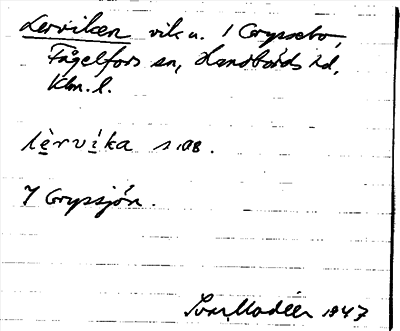 Lerviken vik u. 1 Grypsebo,
Fågelfors sn, Handbörds hd,
Klm. l.
lèrvíka s.
I Grypsjön.
Ivar Modéer 1947